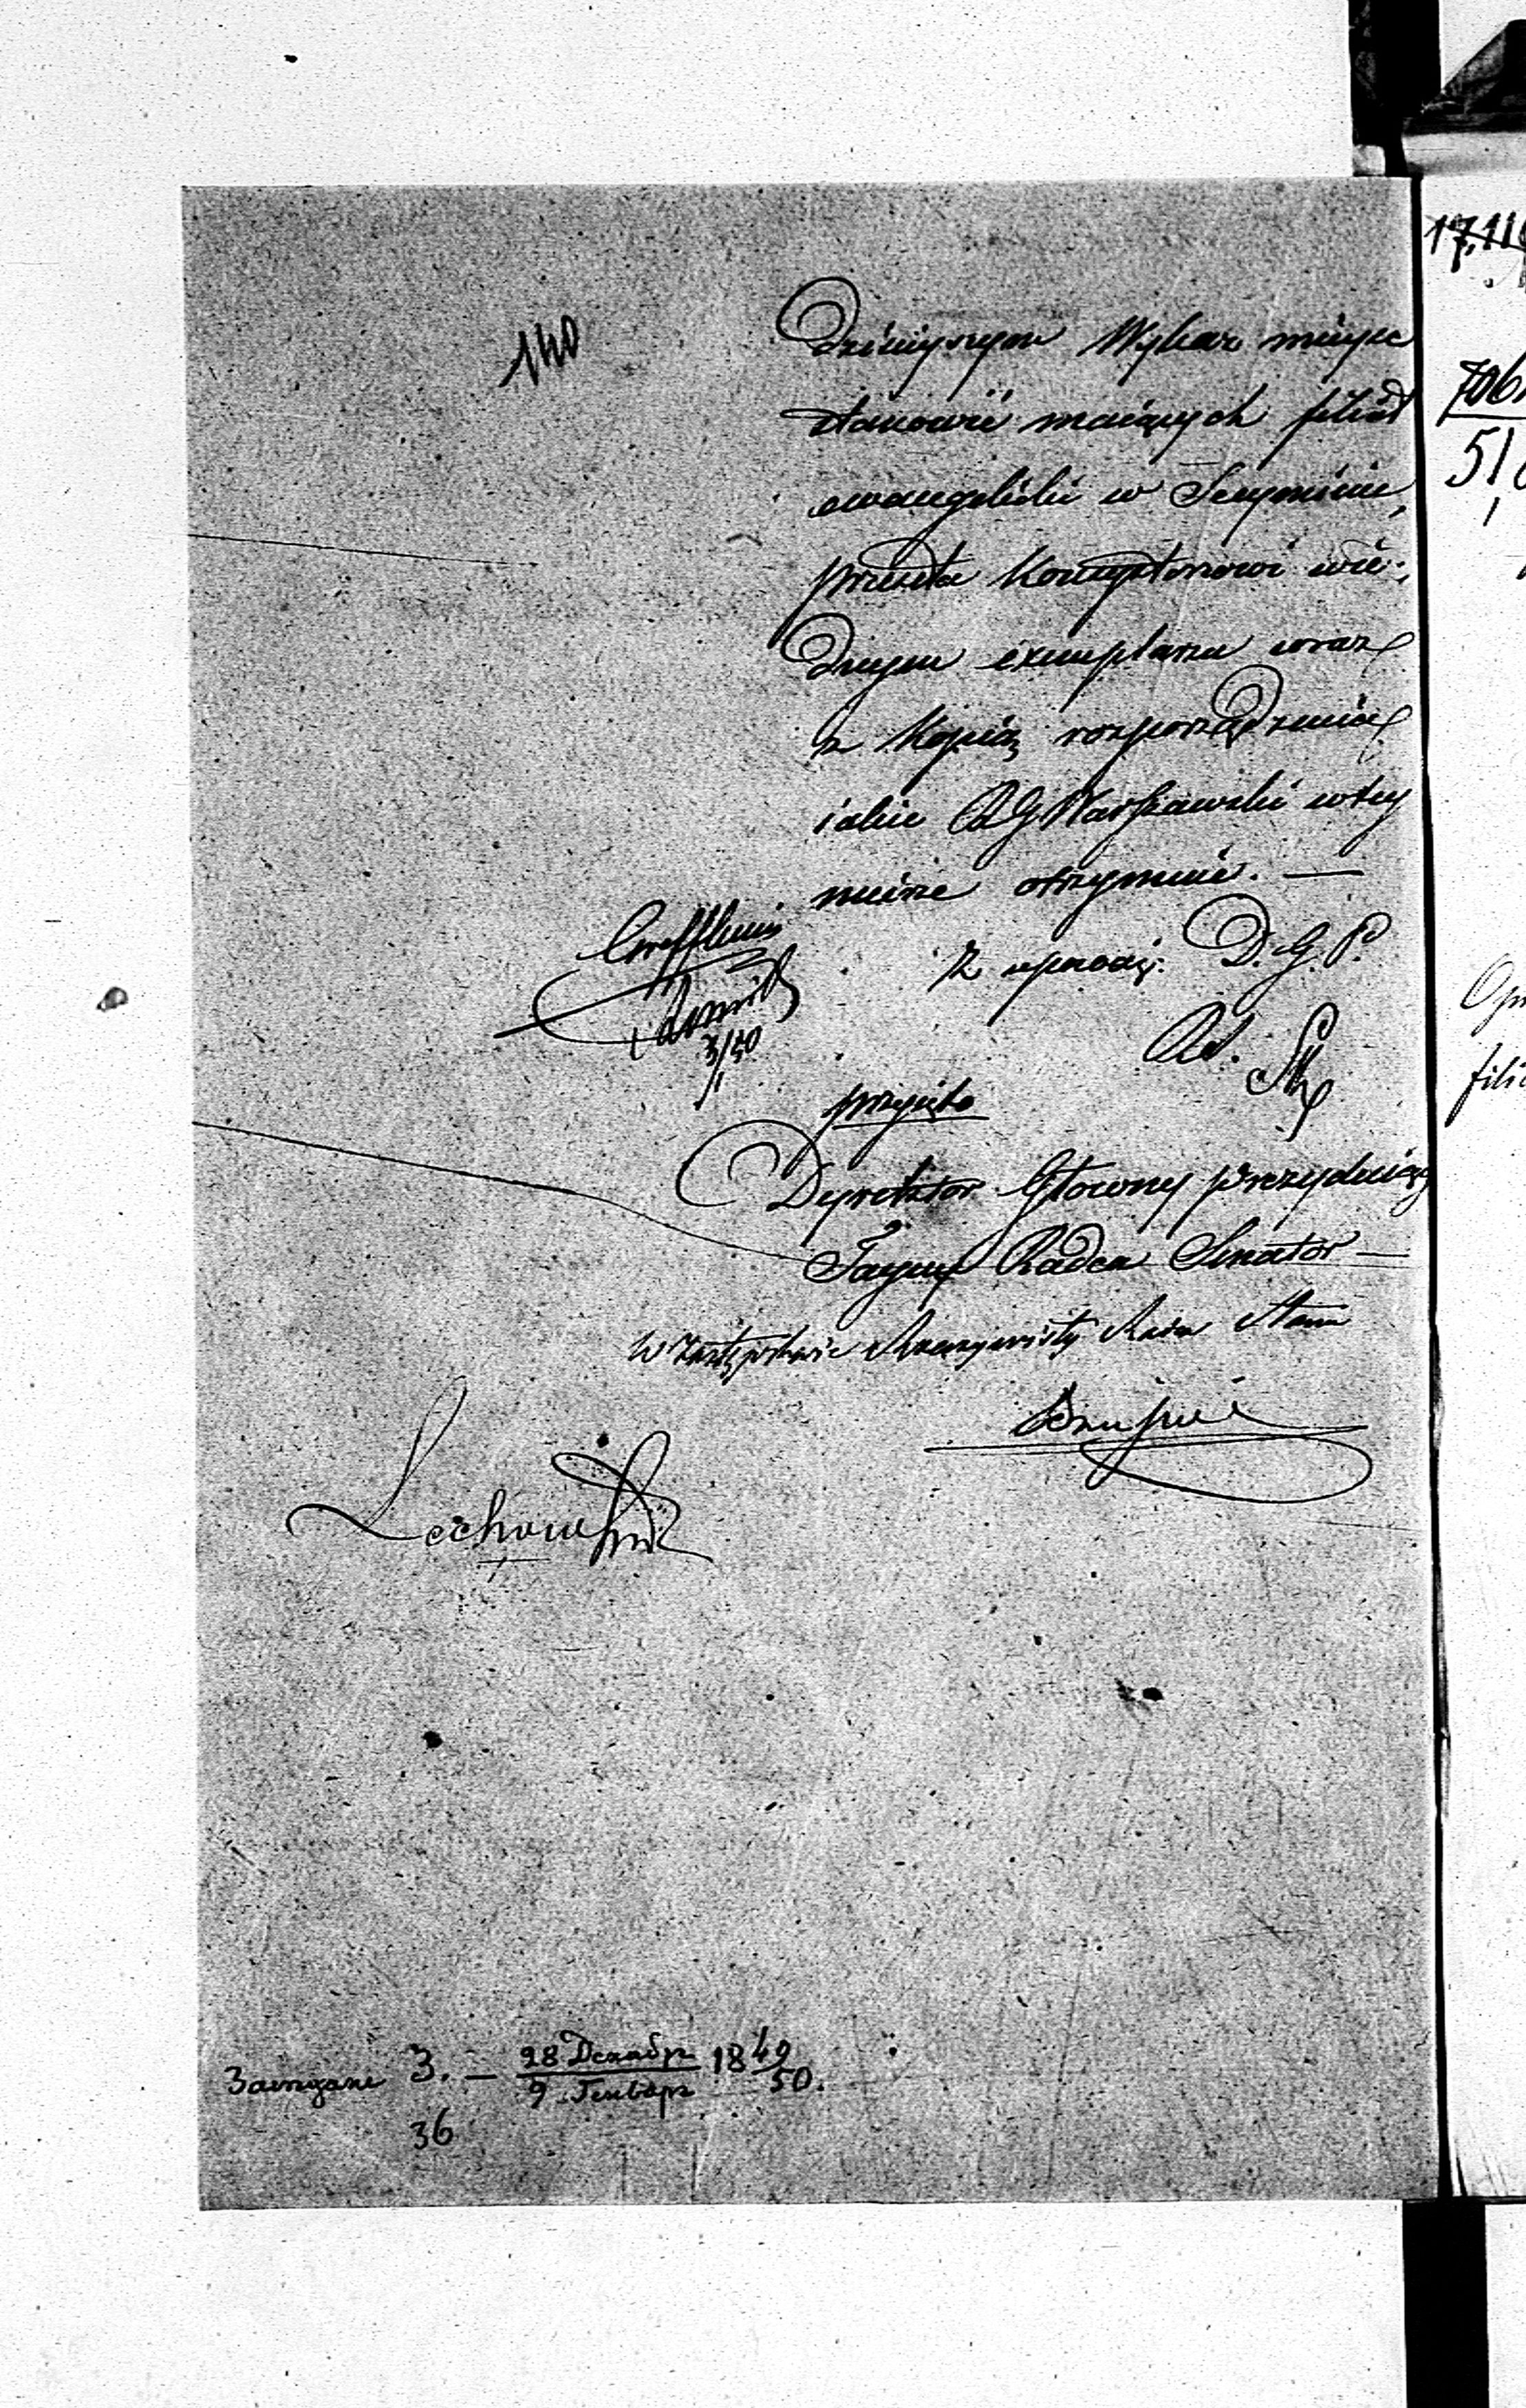 140
dzisiejszym Wykaz miejsc
stanowić maiących filiał
ewangelicki w Secyminie,
przesyła Konsystorzowi w
drugim exemplarzu wraz
z Kopią rozporządzenia
iakie RG Warszawski w tey
mierze otrzymuie. —
Z upoważ. D. G. P.
3/1 50
przyięto
Dyrektor Głowny prezyduiący
Tayny Radca Senator —
W Zastępstwie Rzeczywisty Radca Stanu
Lechowski
Заседание 3. — 28 Декабр / 9 Генваря 1849/50.
36
17,11
706
51
fili